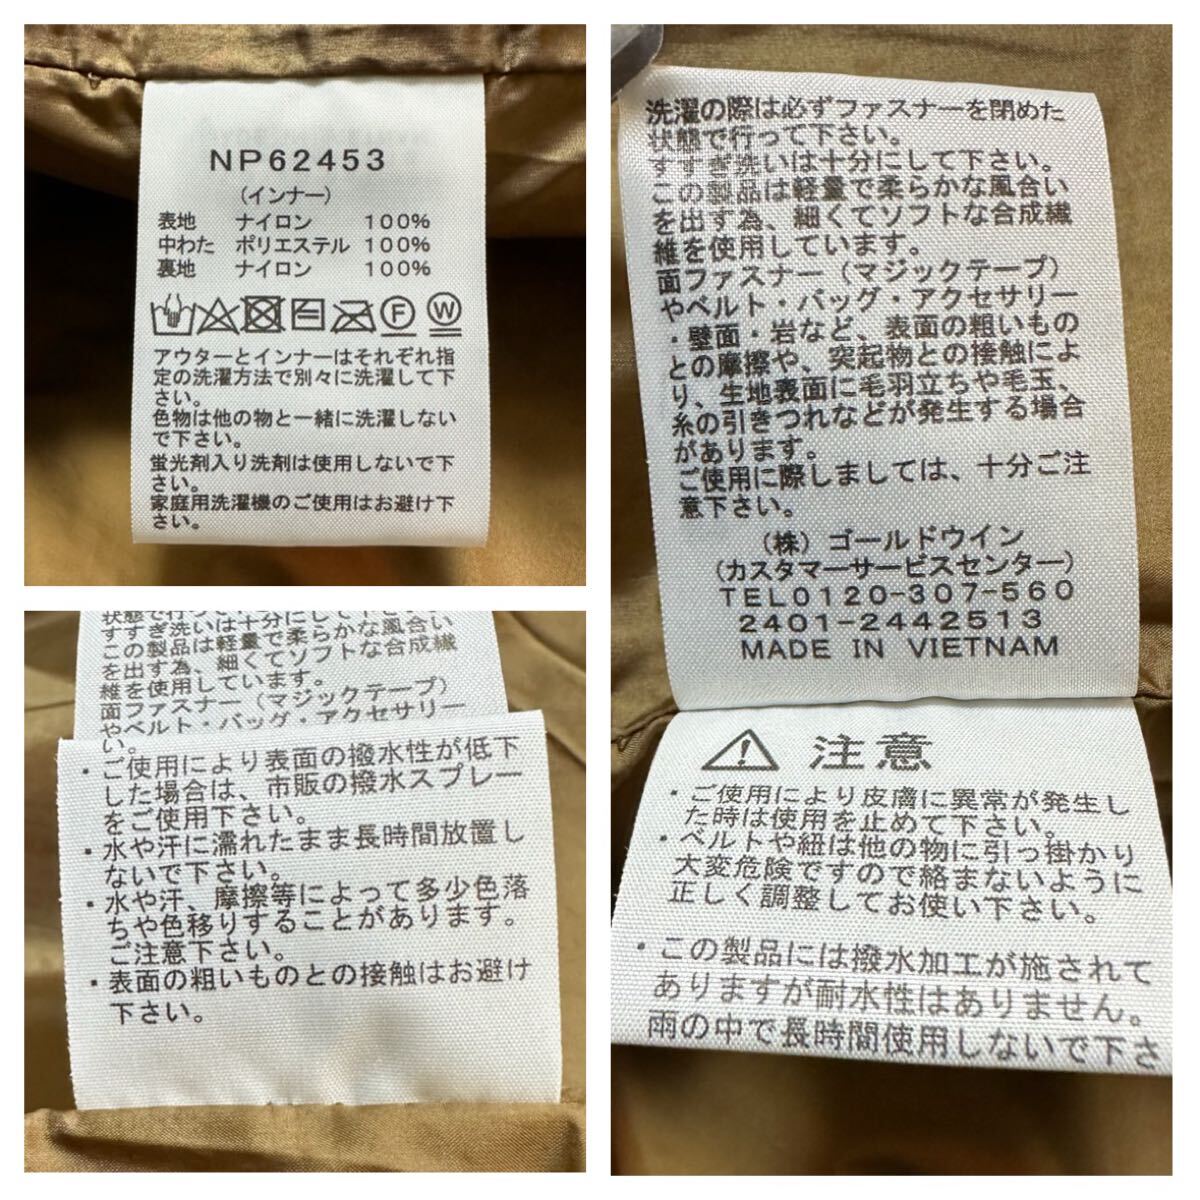 NP62453
(インナー)
表地 ナイロン 100%
中わた ポリエステル 100%
裏地 ナイロン 100%
F W
アウターとインナーはそれぞれ指
定の洗濯方法で別々に洗濯して下
さい。
色物は他の物と一緒に洗濯しない
で下さい。
蛍光剤入り洗剤は使用しないで下
さい。
家庭用洗濯機のご使用はお避け下
さい。
洗濯の際は必ずファスナーを閉めた
状態で行って下さい。
すすぎ洗いは十分にして下さい。
この製品は軽量で柔らかな風合い
を出す為、細くてソフトな合成繊
維を使用しています。
面ファスナー(マジックテープ)
やベルト・バッグ・アクセサリー
・壁面・岩など、表面の粗いもの
との摩擦や、突起物との接触によ
り、生地表面に毛羽立ちや毛玉、
糸の引きつれなどが発生する場合
があります。
ご使用に際しましては、十分ご注
意下さい。
(株)ゴールドウイン
(カスタマーサービスセンター)
TEL0120-307-560
2401-2442513
MADE IN VIETNAM
注意
・ご使用により皮膚に異常が発生し
た時は使用を止めて下さい。
・ベルトや紐は他の物に引っ掛かり
大変危険ですので絡まないように
正しく調整してお使い下さい。
・この製品には撥水加工が施されて
ありますが耐水性はありません。
雨の中で長時間使用しないで下さ
状態で行って下さい。
すすぎ洗いは十分にして下さい。
この製品は軽量で柔らかな風合い
を出す為、細くてソフトな合成繊
維を使用しています。
面ファスナー(マジックテープ)
やベルト・バッグ・アクセサリー
い。
・ご使用により表面の撥水性が低下
した場合は、市販の撥水スプレー
をご使用下さい。
・水や汗に濡れたまま長時間放置し
ないで下さい。
・水や汗、摩擦等によって多少色落
ちや色移りすることがあります。
ご注意下さい。
・表面の粗いものとの接触はお避け
下さい。